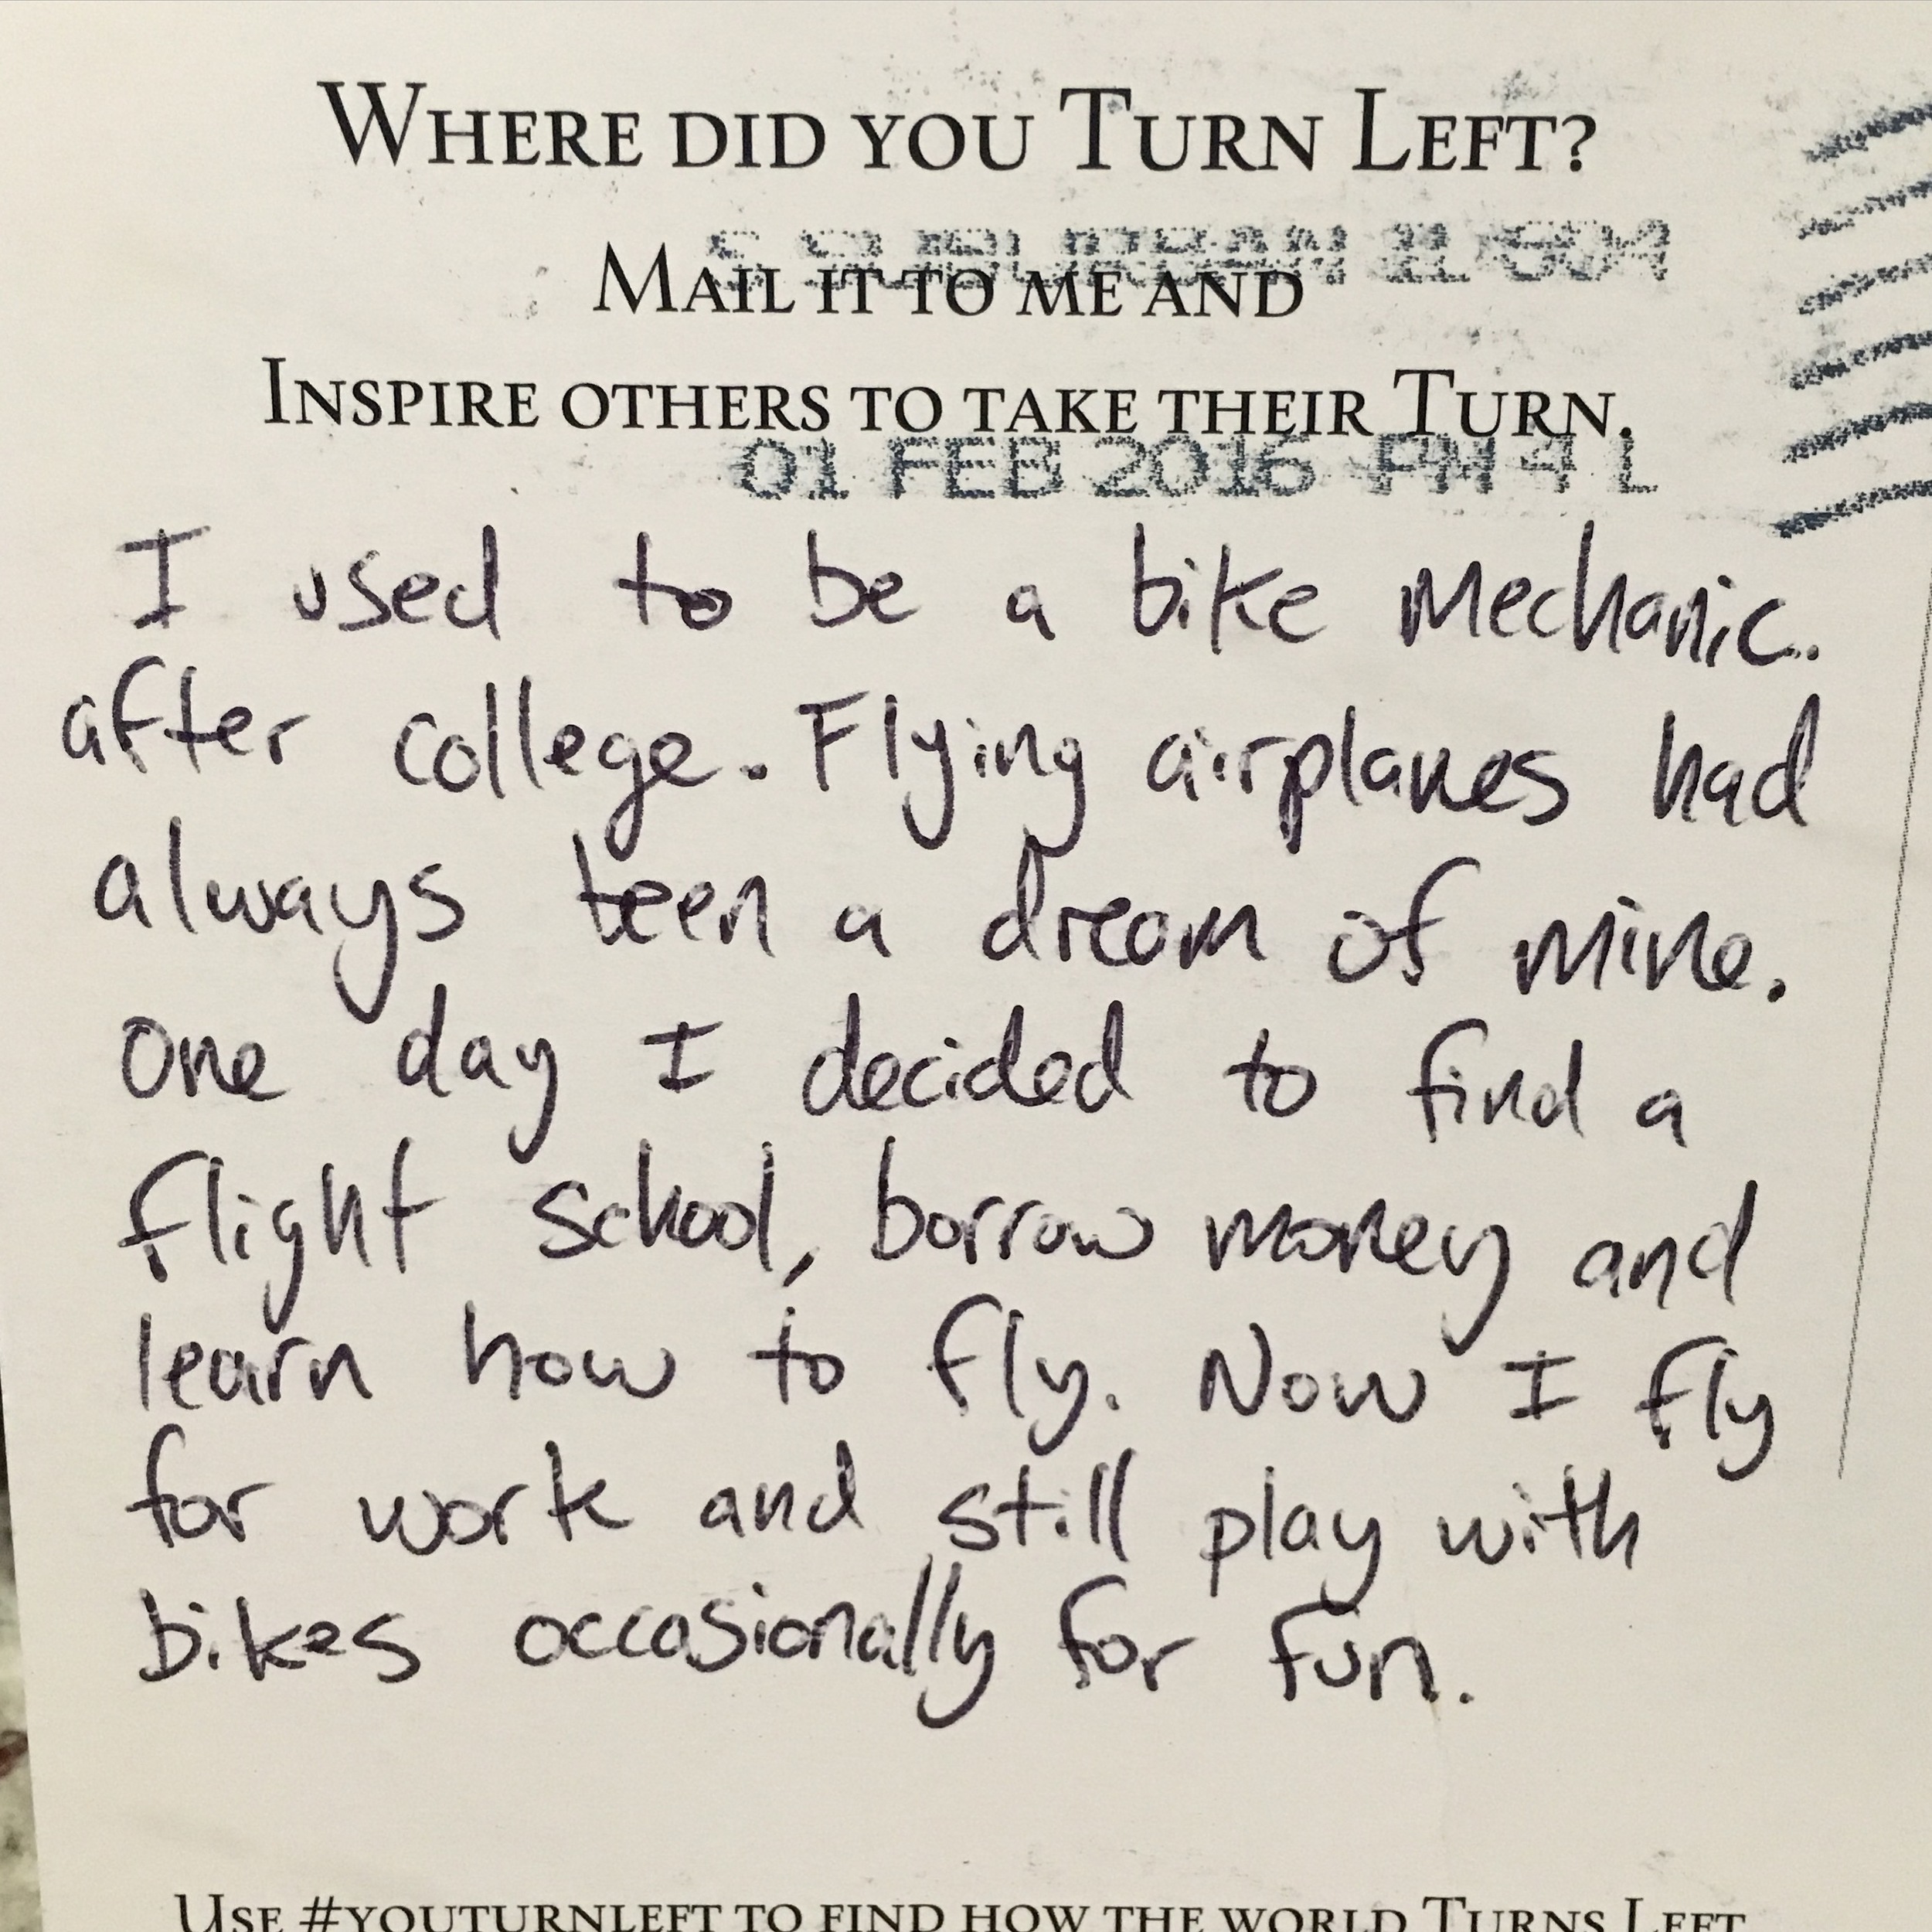 WHERE DID YOU TURN LEFT?
S SUBURBAN IL 604
MAIL IT TO ME AND
INSPIRE OTHERS TO TAKE THEIR TURN.
01 FEB 2016 PM 4 L
I used to be a bike mechanic.
after college. Flying airplanes had
always been a dream of mine.
One day I decided to find a
flight school, borrow money and
learn how to fly. Now I fly
for work and still play with
bikes occasionally for fun.
USE #YOUTURNLEFT TO FIND HOW THE WORLD TURNS LEFT